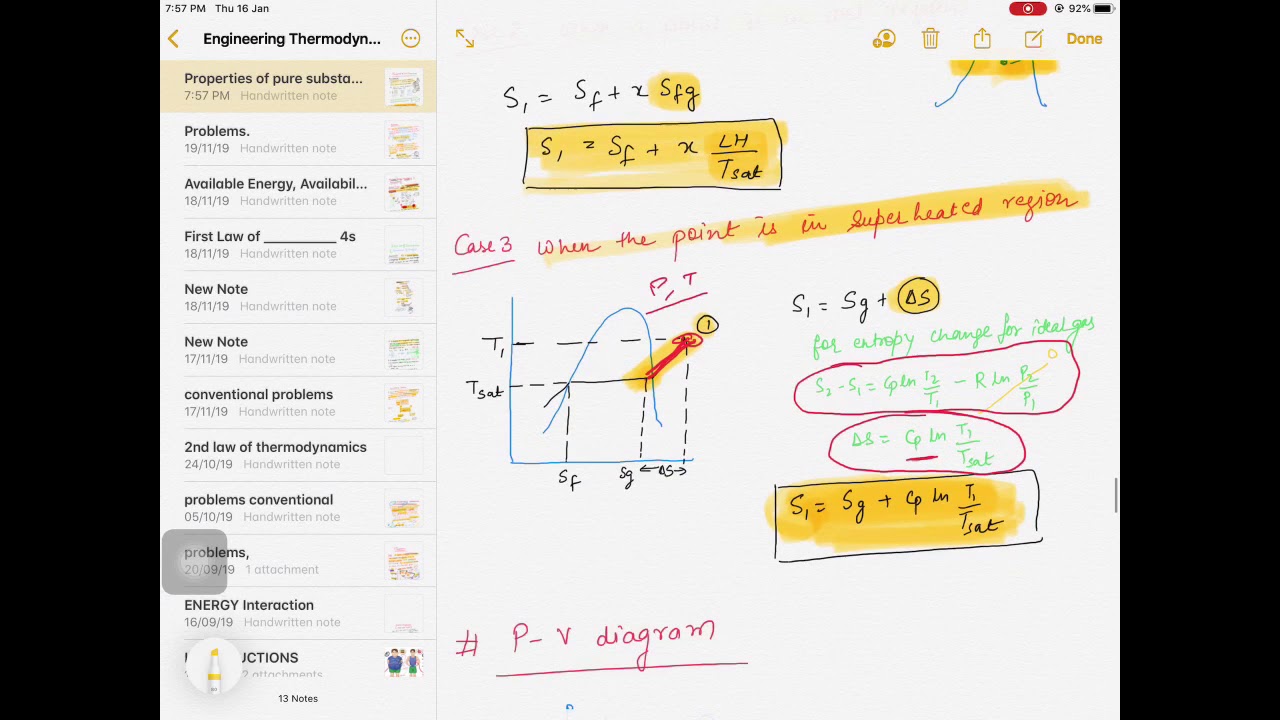 7:57 PM Thu 16 Jan
92%
Engineering Thermodyn...
Done
Properties of pure substa...
7:57 PM Handwritten note
Problems.
19/11/19 Handwritten note
Available Energy, Availabil...
18/11/19 Handwritten note
First Law of __________ 4s
18/11/19 Handwritten note
New Note
18/11/19 Handwritten note
New Note
17/11/19 Handwritten note
conventional problems
17/11/19 Handwritten note
2nd law of thermodynamics
24/10/19 Handwritten note
problems conventional
05/10/19 Handwritten note
problems,
20/09/19 1 attachment
ENERGY Interaction
16/09/19 Handwritten note
2 attachments
13 Notes
S₁ = Sf + x Sfg
S₁ = Sf + x LH/Tsat
Case 3 When the point is in superheated region
P, T
1
T₁
Tsat
Sf Sg ΔS
S₁ = Sg + ΔS
for entropy change for ideal gas
S₂ - S₁ = Cp ln T₂/T₁ - R ln P₂/P₁ 0
ΔS = Cp ln T₁/Tsat
S₁ = Sg + Cp ln T₁/Tsat
# P-V diagram